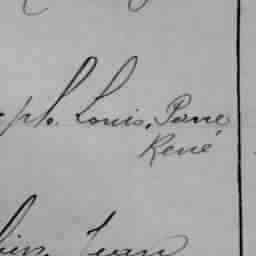 ph. Louis, Pierre
René
Jean